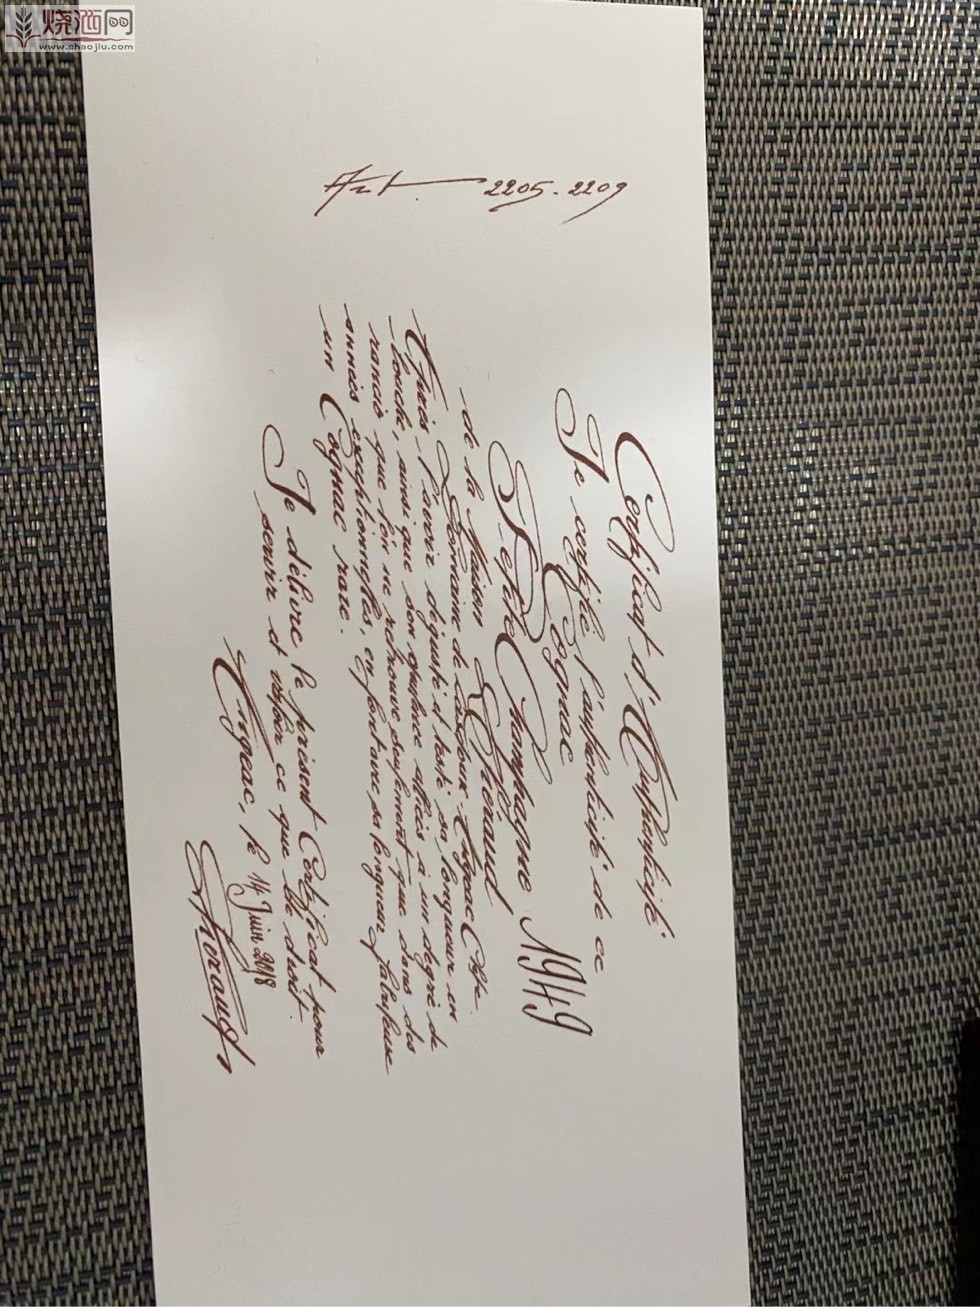 烧酒网
www.shaojiu.com
Certificat d'Authenticité
Je certifie l'authenticité de ce
Cognac
Petite Champagne 1949
de la Maison
Domaine de Lasdoux - Angeac Chpe.
Après l'avoir dégusté et testé sa longueur en
bouche, ainsi que son opulence alliés à un degré de
rancio que l'on ne retrouve seulement que dans des
années exceptionnelles, en font avec sa longueur fabuleuse
un Cognac rare.
Je délivre le présent Certificat pour
servir et valoir ce que de droit.
Angeac, le 14 Juin 2018
2205-2209